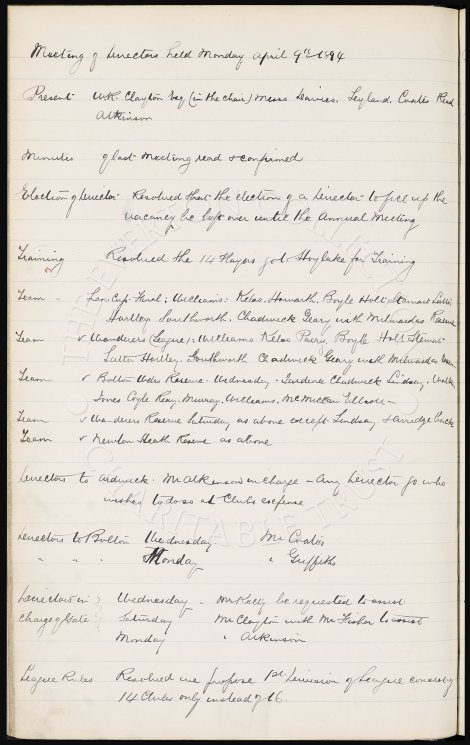 Meeting of Directors held Monday April 9th 1894
Present W.R. Clayton Esq (in the chair) Messrs Davies, Leyland, Coates Read
Atkinson
Minutes of last Meeting read & confirmed
Election of Director Resolved that the Election of a Director to fill up the
vacancy be left over until the Annual Meeting
Training Resolved the 14 Players go to Hoylake for Training
Team Lan. Cup. Final: Williams. Kelso. Howarth. Boyle Holt Stewart Latta
Hartley Southworth. Chadwick Geary with Milward as Reserve
Team v Wanderers (League): Williams Kelso Parry, Boyle Holt Stewart
Latta Hartley. Southworth Chadwick Geary with Milward as
Team v Bolton Wdrs Reserve - Wednesday - Chadwick Lindsay.
Jones Coyle Reay. Murray. Williams. McMillan Elliott
Team v Wanderers Reserve Saturday as above except Lindsay & Arridge back
Team v Newton Heath Reserve as above
Directors to Ardwick. Mr Atkinson in charge - Any Director go who
wishes to do so at Clubs expense
Directors to Bolton Wednesday Mr Coates
" " " Monday " Griffiths
Directors in Wednesday Mr Kelly be requested to assist
charge of Gate Saturday Mr Clayton with Mr Fisher to assist
Monday " Atkinson
League Rules Resolved we propose 1st Division of League consist of
14 Clubs only instead of 16.
THE EVERTON
CHARITABLE TRUST